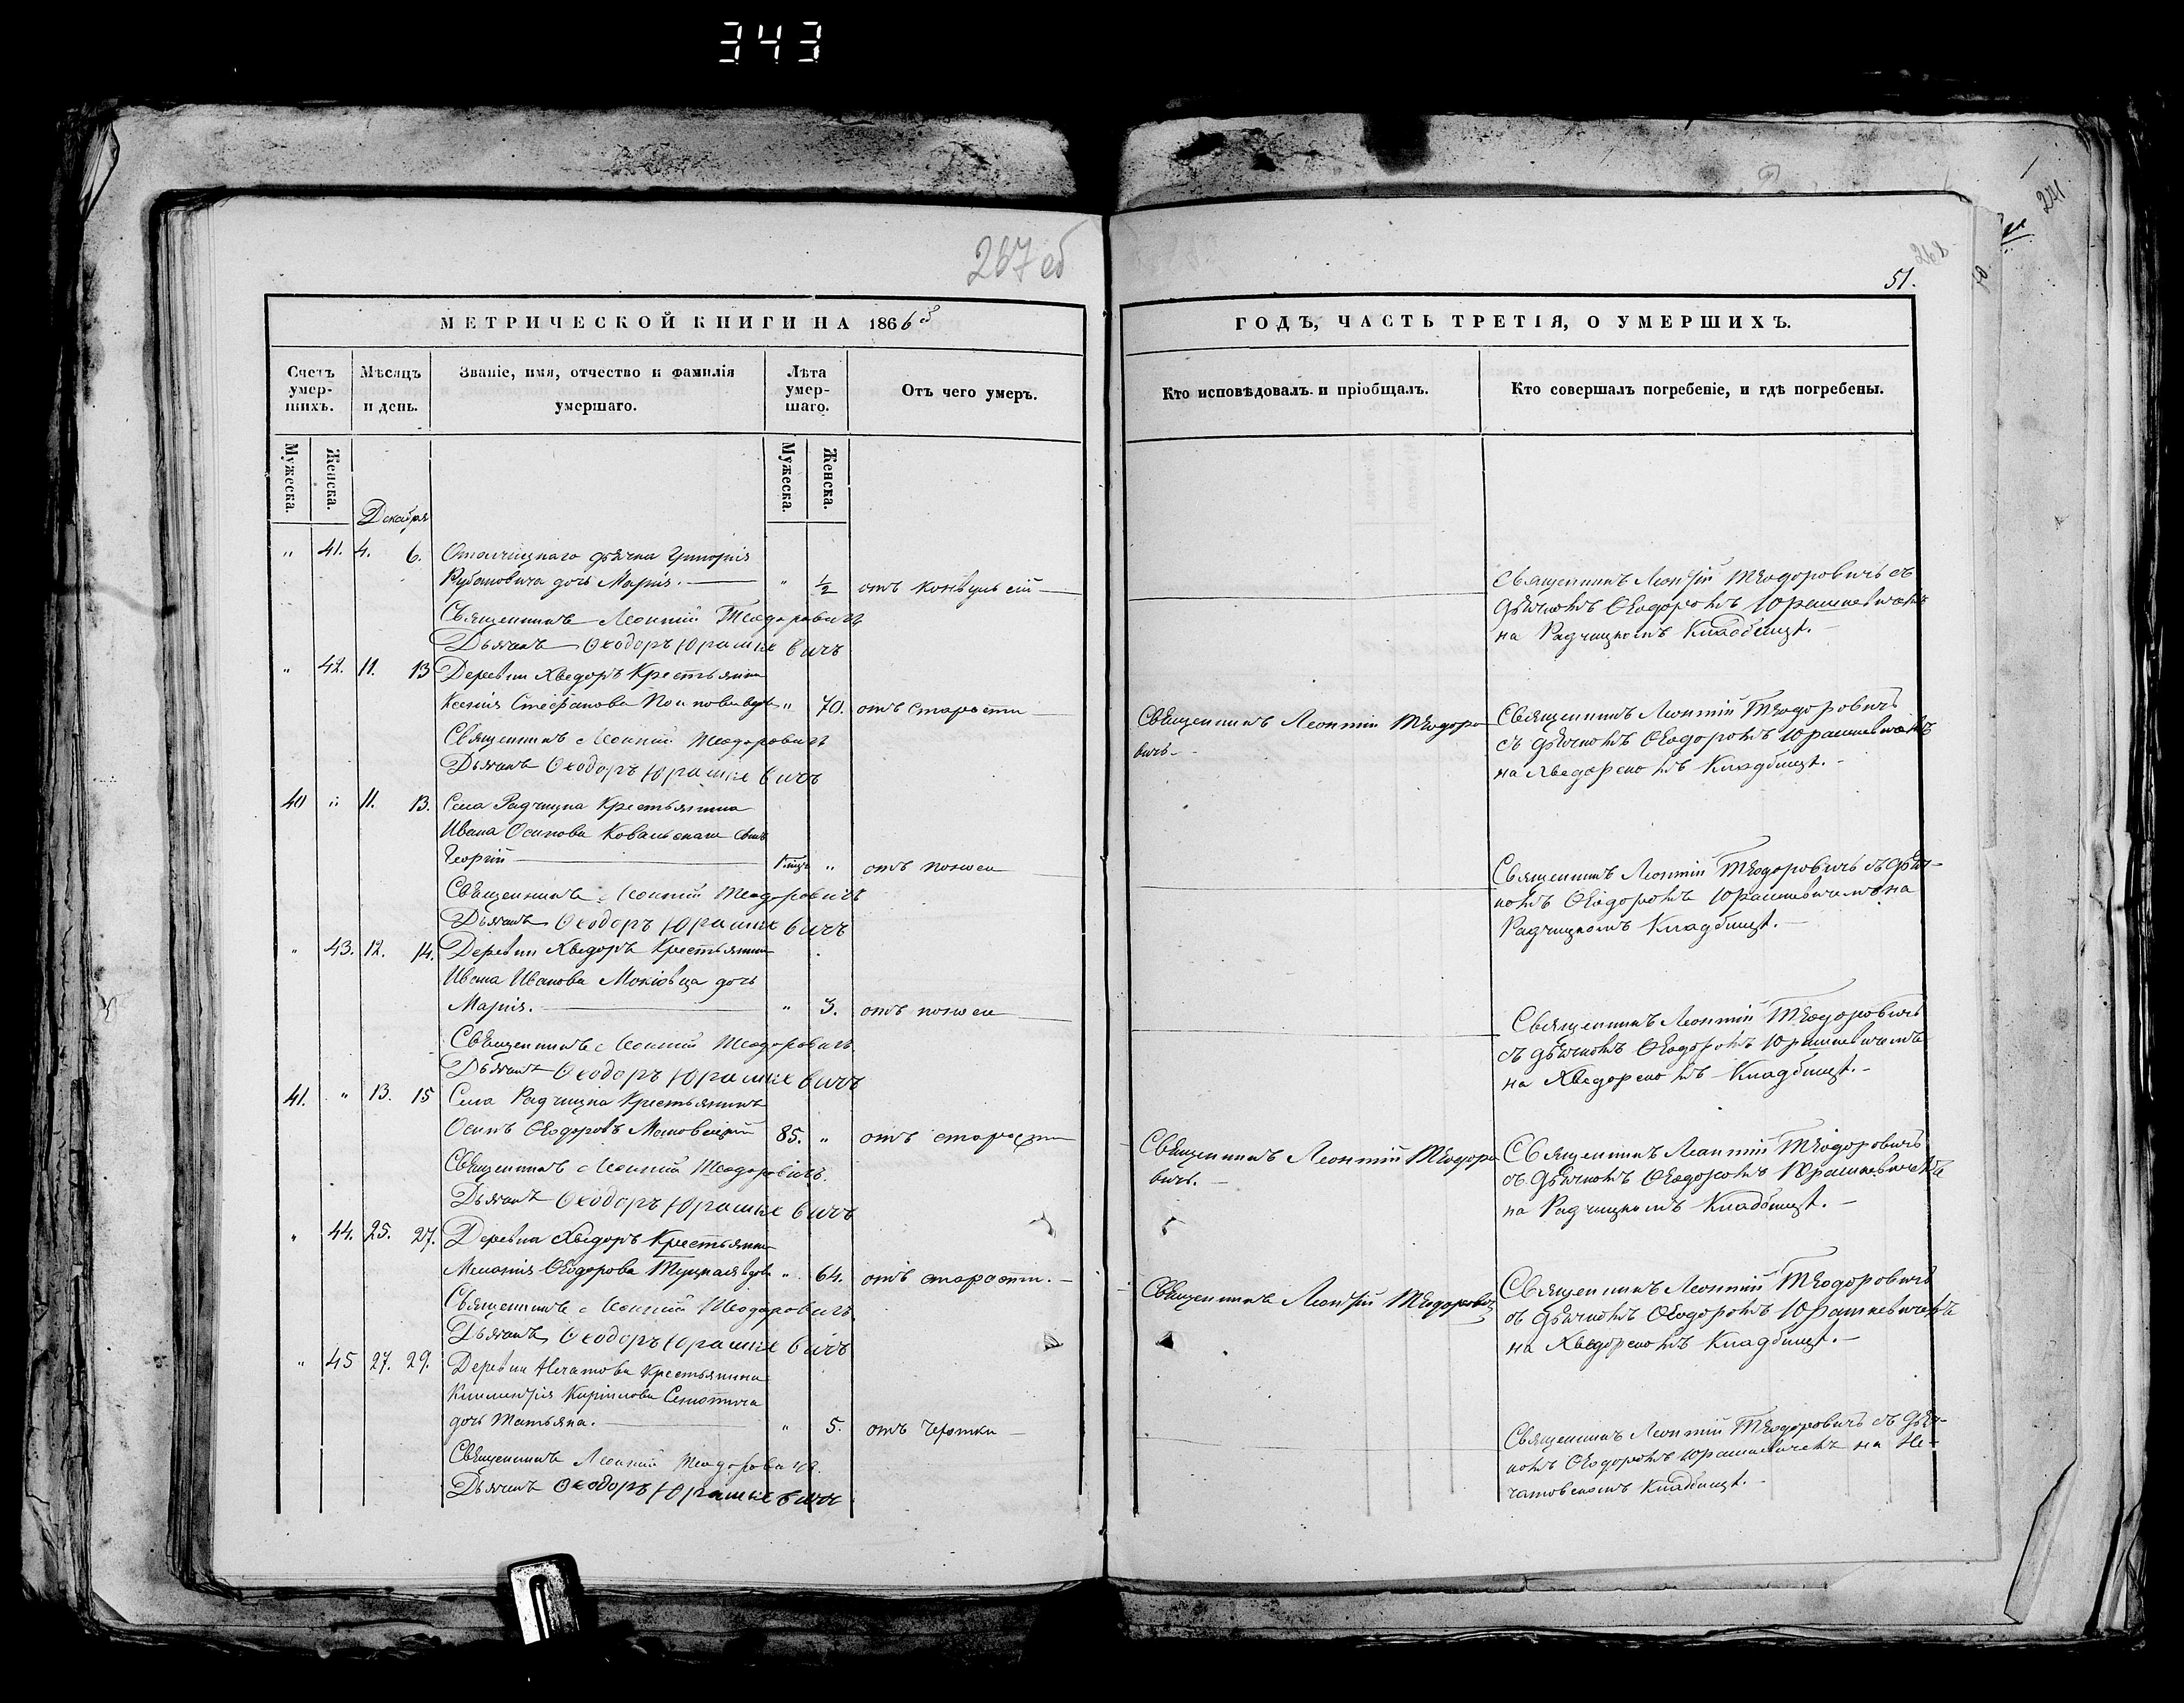 343
267 об
МЕТРИЧЕСКОЙ КНИГИ НА 1866й
Счетъ умер-шихъ.
Мѣсяцъ и день.
Званіе, имя, отчество и фамилія умершаго.
Лѣта умер-шаго.
Отъ чего умеръ.
Мужеска.
Женска.
Мужеска.
Женска.
Декабря
" 41. 4. 6. дьячка Григорія
Рубановича дочь Марія. — " ½ отъ конвульсій —
Священникъ Леонтій Теодоровичъ
Дьячекъ Ѳеодоръ Юрашкевичъ
" 42. 11. 13 Деревни Хведоръ Крестьянка
Ксенія Стефанова вдова " 70. отъ старости —
Священникъ Леонтій Теодоровичъ
Дьячекъ Ѳеодоръ Юрашкевичъ
40 " 11. 13. Села Радчицка Крестьянина
Ивана Осипова Ковальскаго сынъ
Георгій — " отъ поноса
Священникъ Леонтій Теодоровичъ
Дьячекъ Ѳеодоръ Юрашкевичъ
" 43. 12. 14. Деревни Хведоръ Крестьянина
Ивана Иванова дочь
Марія. — " 3. отъ поноса —
Священникъ Леонтій Теодоровичъ
Дьячекъ Ѳеодоръ Юрашкевичъ
41. " 13. 15 Села Радчицка Крестьянинъ
Осипъ Ѳеодоровъ 85. " отъ старости
Священникъ Леонтій Теодоровичъ.
Дьячекъ Ѳеодоръ Юрашкевичъ
" 44. 25. 27. Деревни Хведоръ Крестьянка
Меланія Ѳеодорова вдова " 64. отъ старости. —
Священникъ Леонтій Теодоровичъ
Дьячекъ Ѳеодоръ Юрашкевичъ
" 45 27. 29. Деревни Нечатова Крестьянина
Климентія Кирилова
дочь Татьяна. — " 5. отъ чесотки —
Священникъ Леонтій Теодоровичъ.
Дьячекъ Ѳеодоръ Юрашкевичъ
241
268
51.
ГОДЪ, ЧАСТЬ ТРЕТІЯ, О УМЕРШИХЪ.
Кто исповѣдовалъ и пріобщалъ.
Кто совершалъ погребеніе, и гдѣ погребены.
Священникъ Леонтій Теодоровичъ съ
дьячкомъ Ѳеодоромъ Юрашкевичемъ
на Радчицкомъ Кладбищѣ. —
Священникъ Леонтій Теодоро
вичъ. —
Священникъ Леонтій Теодоровичъ
съ дьячкомъ Ѳеодоромъ Юрашкевичемъ
на Хведорскомъ Кладбищѣ. —
Священникъ Леонтій Теодоровичъ съ дьяч-
комъ Ѳеодоромъ Юрашкевичемъ на
Радчицкомъ Кладбищѣ. —
Священникъ Леонтій Теодоровичъ
съ дьячкомъ Ѳеодоромъ Юрашкевичемъ
на Хведорскомъ Кладбищѣ. —
Священникъ Леонтій Теодоро
вичъ. —
Священникъ Леонтій Теодоровичъ
съ дьячкомъ Ѳеодоромъ Юрашкевичемъ
на Радчицкомъ Кладбищѣ. —
Священникъ Леонтій Теодоровичъ
Священникъ Леонтій Теодоровичъ
съ дьячкомъ Ѳеодоромъ Юрашкевичемъ
на Хведорскомъ Кладбищѣ. —
Священникъ Леонтій Теодоровичъ съ дьяч-
комъ Ѳеодоромъ Юрашкевичемъ на Не-
чатовскомъ Кладбищѣ. —